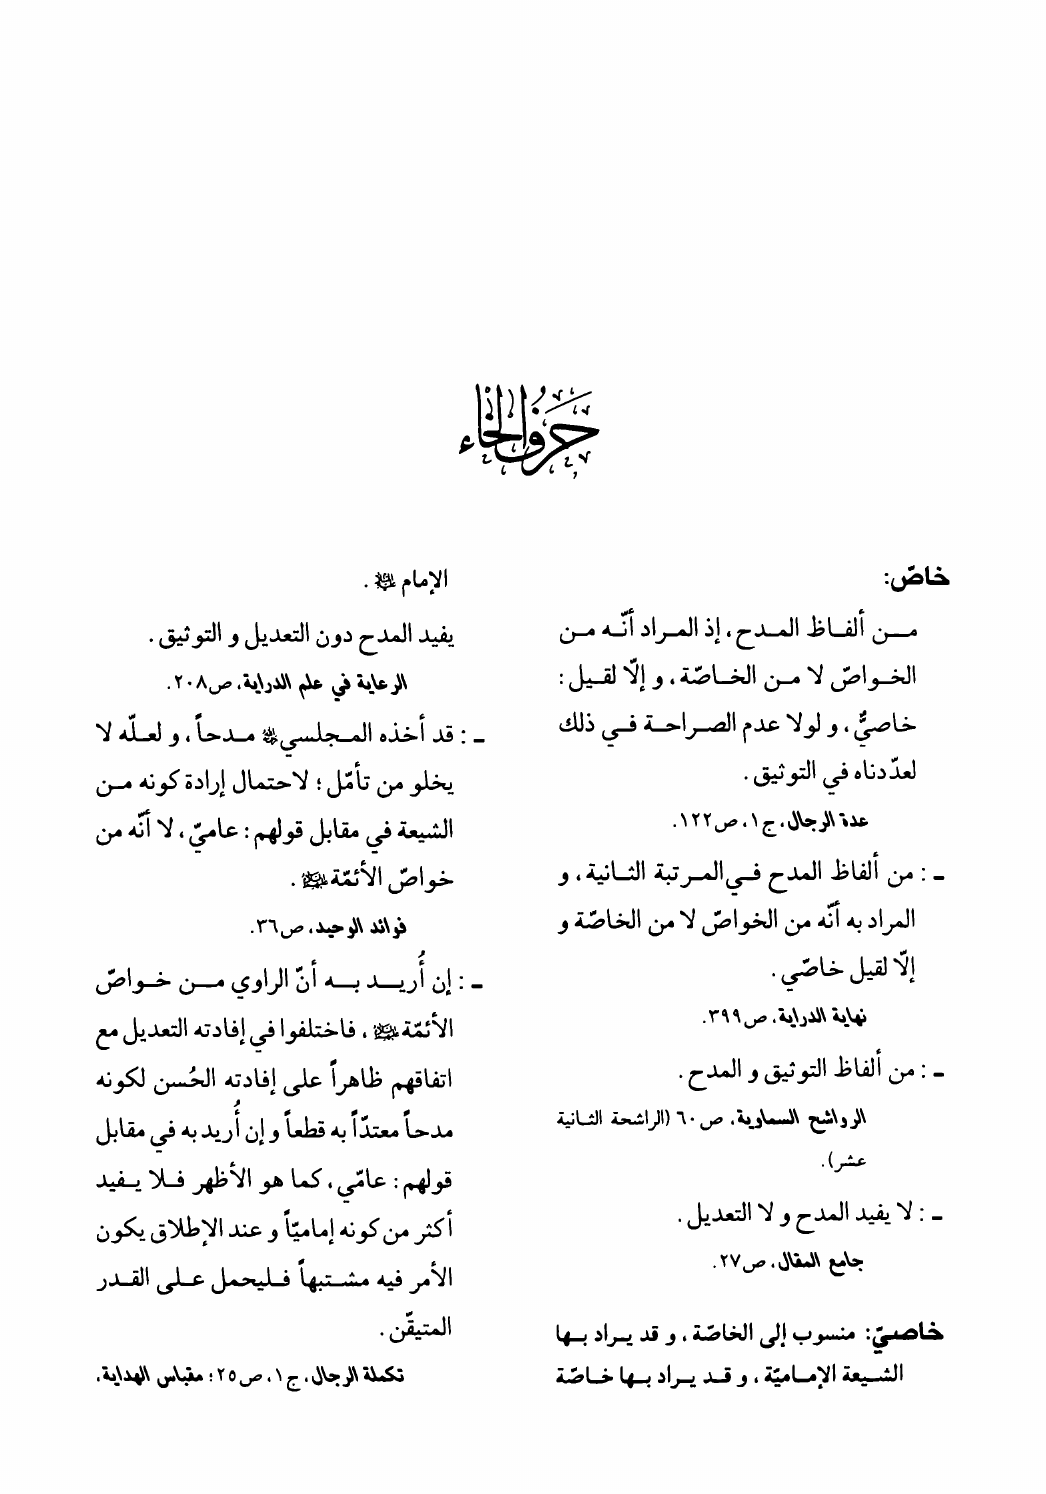 حرف الخاء
خاصّ:
من ألفاظ المدح، إذ المراد أنّه من
الخواصّ لا من الخاصّة، و إلّا لقيل:
خاصيٌّ، و لولا عدم الصراحة في ذلك
لعدّدناه في التوثيق.
عدة الرجال، ج١، ص١٢٢.
ـ : من ألفاظ المدح في المرتبة الثانية، و
المراد به أنّه من الخواصّ لا من الخاصّة و
إلّا لقيل خاصّي.
نهاية الدراية، ص٣٩٩.
ـ : من ألفاظ التوثيق و المدح.
الرواشح السماوية، ص٦٠ (الراشحة الثانية
عشر).
ـ : لا يفيد المدح و لا التعديل.
جامع المقال، ص٢٧.
خاصيّ: منسوب إلى الخاصّة، و قد يراد بها
الشيعة الإماميّة، و قد يراد بها خاصّة
الإمام ﷺ.
يفيد المدح دون التعديل و التوثيق.
الرعاية في علم الدراية، ص٢٠٨.
ـ : قد أخذه المجلسي مدحاً، و لعلّه لا
يخلو من تأمّل؛ لاحتمال إرادة كونه من
الشيعة في مقابل قولهم: عاميّ، لا أنّه من
خواصّ الأئمّة.
فوائد الوحيد، ص٣٦.
ـ : إن أُريد به أنّ الراوي من خواصّ
الأئمّة، فاختلفوا في إفادته التعديل مع
اتفاقهم ظاهراً على إفادته الحُسن لكونه
مدحاً معتدّاً به قطعاً و إن أُريد به في مقابل
قولهم: عامّي، كما هو الأظهر فلا يفيد
أكثر من كونه إماميّاً و عند الإطلاق يكون
الأمر فيه مشتبهاً فليحمل على القدر
المتيقّن.
تكملة الرجال، ج١، ص٢٥؛ مقباس الهداية،